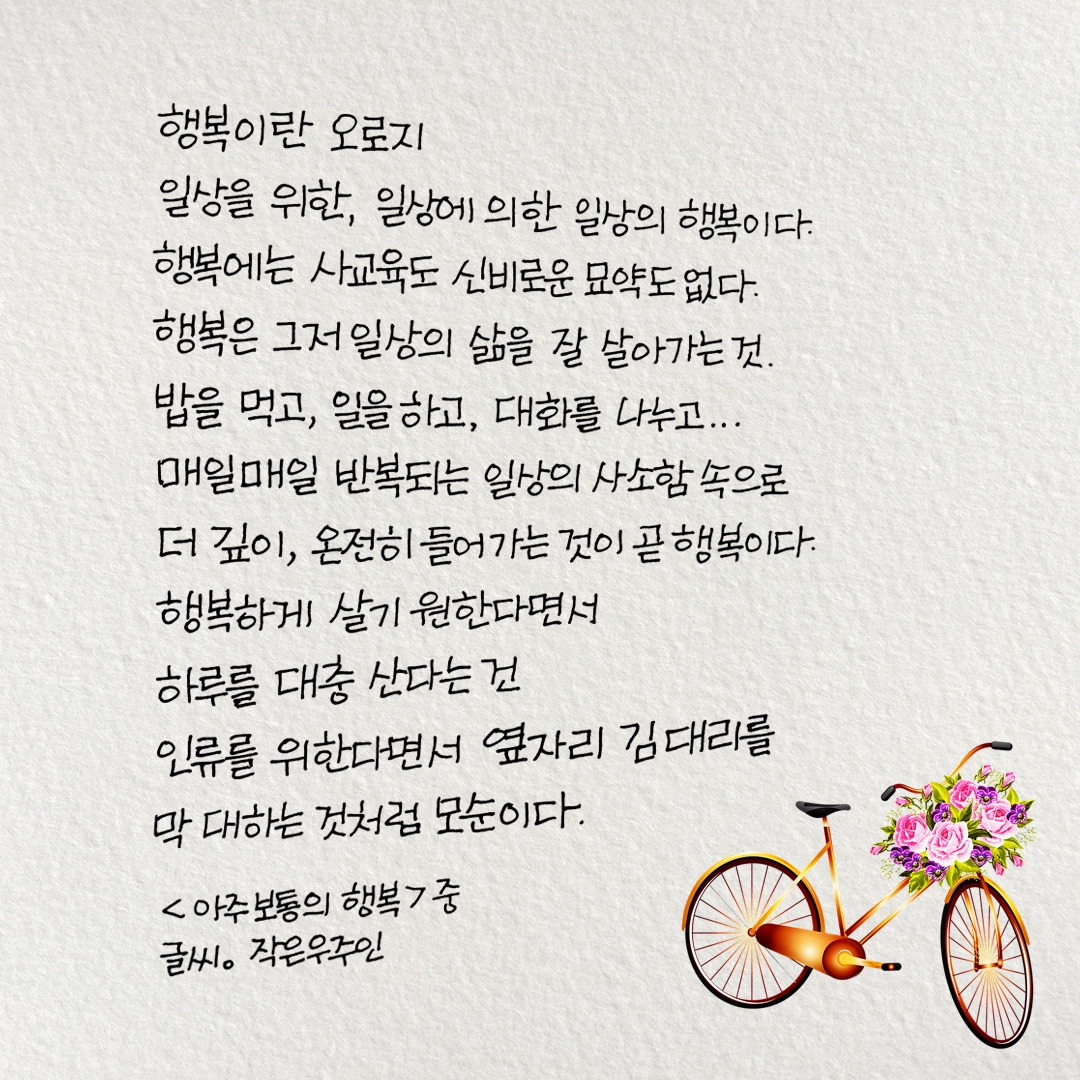 행복이란 오로지
일상을 위한, 일상에 의한 일상의 행복이다.
행복에는 사교육도 신비로운 묘약도 없다.
행복은 그저 일상의 삶을 잘 살아가는 것.
밥을 먹고, 일을 하고, 대화를 나누고...
매일매일 반복되는 일상의 사소함 속으로
더 깊이, 온전히 들어가는 것이 곧 행복이다.
행복하게 살기 원한다면서
하루를 대충 산다는 건
인류를 위한다면서 옆자리 김대리를
막 대하는 것처럼 모순이다.
<아주 보통의 행복> 중
글씨。 작은우주인